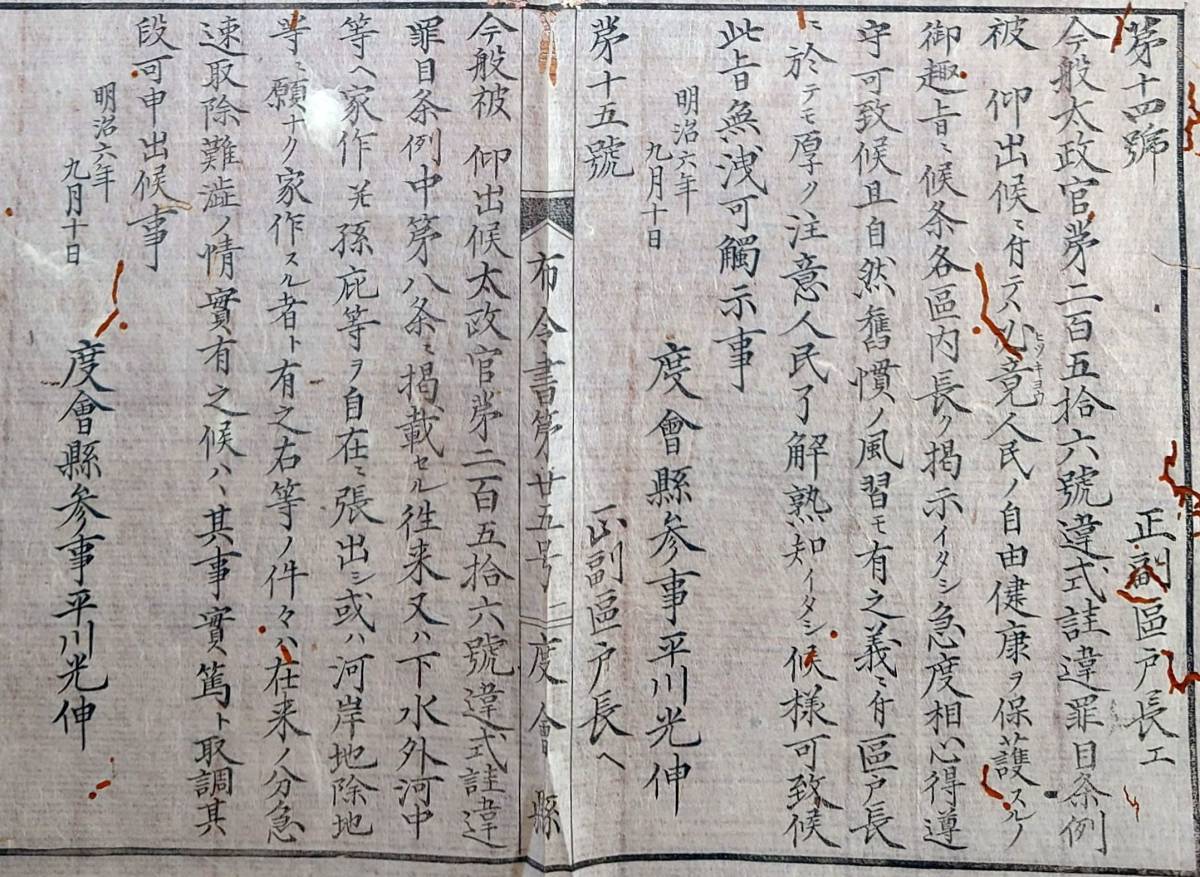 第十四號
正副區戸長エ
今般太政官第二百五拾六號違式詿違罪目条例
被　仰出候ニ付テハ必竟人民ノ自由健康ヲ保護スルノ
ヒツキヨウ
御趣旨ニ候条各區内長ク掲示イタシ急度相心得遵
守可致候且自然舊慣ノ風習モ有之義ニ付區戸長
ニ於テモ厚ク注意人民了解熟知イタシ候様可致候
此旨無洩可觸示事
明治六年
九月十日
度會縣参事平川光伸
第十五號
正副區戸長へ
布令書第廿五号
二
度會縣
今般被　仰出候太政官第二百五拾六號違式詿違
罪目条例中第八条ニ掲載セル徃来又ハ下水外河中
等ヘ家作并孫庇等ヲ自在ニ張出シ或ハ河岸地除地
等ニ願ナク家作スル者ト有之右等ノ件々ハ在来ノ分急
速取除難澁ノ情實有之候ハヽ其事實篤ト取調其
段可申出候事
明治六年
九月十日
度會縣参事平川光伸